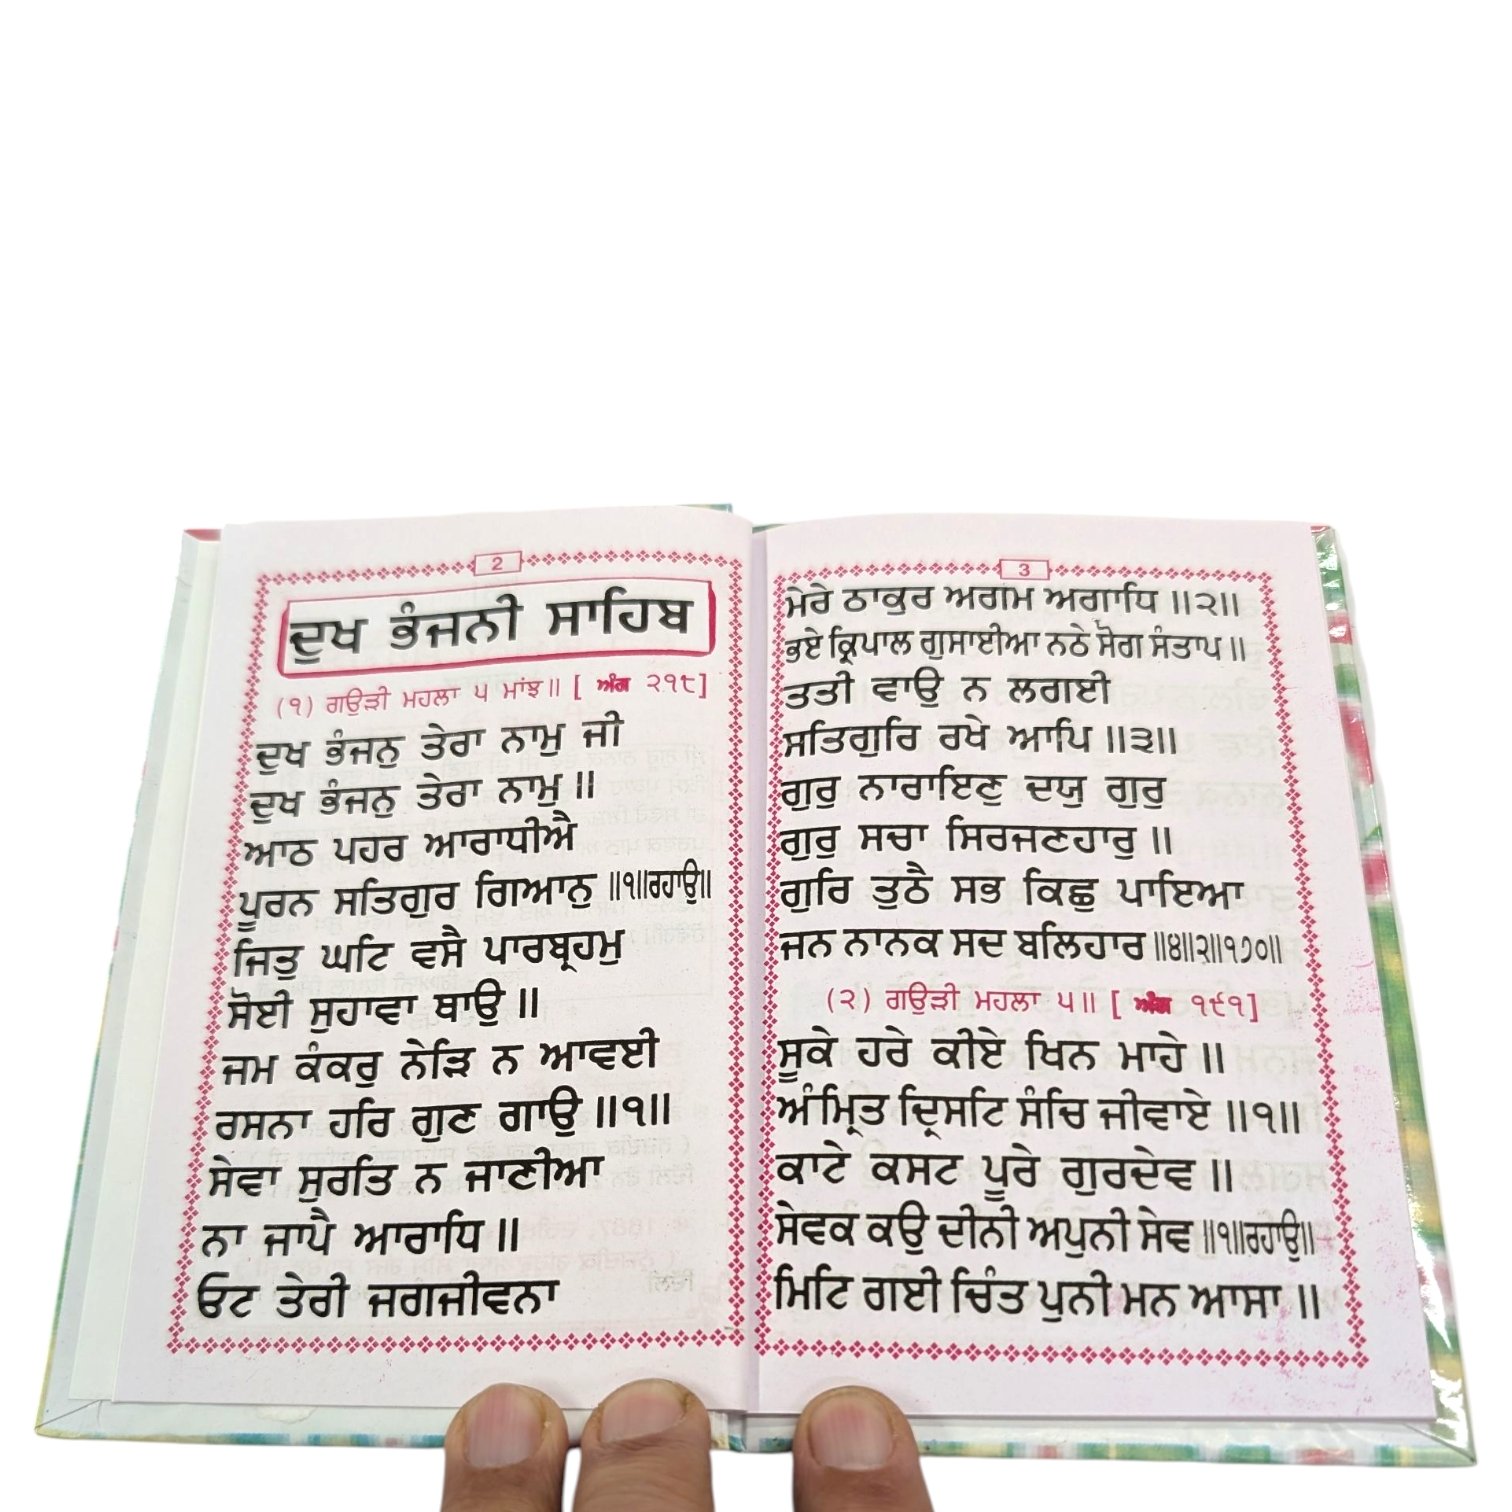 2
ਦੁਖ ਭੰਜਨੀ ਸਾਹਿਬ
(੧) ਗਉੜੀ ਮਹਲਾ ੫ ਮਾਂਝ॥ [ ਅੰਗ ੨੧੮]
ਦੁਖ ਭੰਜਨੁ ਤੇਰਾ ਨਾਮੁ ਜੀ
ਦੁਖ ਭੰਜਨੁ ਤੇਰਾ ਨਾਮੁ ॥
ਆਠ ਪਹਰ ਆਰਾਧੀਐ
ਪੂਰਨ ਸਤਿਗੁਰ ਗਿਆਨੁ ॥੧॥ਰਹਾਉ॥
ਜਿਤੁ ਘਟਿ ਵਸੈ ਪਾਰਬ੍ਰਹਮੁ
ਸੋਈ ਸੁਹਾਵਾ ਥਾਉ ॥
ਜਮ ਕੰਕਰੁ ਨੇੜਿ ਨ ਆਵਈ
ਰਸਨਾ ਹਰਿ ਗੁਣ ਗਾਉ ॥੧॥
ਸੇਵਾ ਸੁਰਤਿ ਨ ਜਾਣੀਆ
ਨਾ ਜਾਪੈ ਆਰਾਧਿ ॥
ਓਟ ਤੇਰੀ ਜਗਜੀਵਨਾ
3
ਮੇਰੇ ਠਾਕੁਰ ਅਗਮ ਅਗਾਧਿ ॥੨॥
ਭਏ ਕ੍ਰਿਪਾਲ ਗੁਸਾਈਆ ਨਠੇ ਸੋਗ ਸੰਤਾਪ ॥
ਤਤੀ ਵਾਉ ਨ ਲਗਈ
ਸਤਿਗੁਰਿ ਰਖੇ ਆਪਿ ॥੩॥
ਗੁਰੁ ਨਾਰਾਇਣੁ ਦਯੁ ਗੁਰੁ
ਗੁਰੁ ਸਚਾ ਸਿਰਜਣਹਾਰੁ ॥
ਗੁਰਿ ਤੁਠੈ ਸਭ ਕਿਛੁ ਪਾਇਆ
ਜਨ ਨਾਨਕ ਸਦ ਬਲਿਹਾਰ ॥੪॥੨॥੧੭੦॥
(੨) ਗਉੜੀ ਮਹਲਾ ੫॥ [ ਅੰਗ ੧੯੧]
ਸੂਕੇ ਹਰੇ ਕੀਏ ਖਿਨ ਮਾਹੇ ॥
ਅੰਮ੍ਰਿਤ ਦ੍ਰਿਸਟਿ ਸੰਚਿ ਜੀਵਾਏ ॥੧॥
ਕਾਟੇ ਕਸਟ ਪੂਰੇ ਗੁਰਦੇਵ ॥
ਸੇਵਕ ਕਉ ਦੀਨੀ ਅਪੁਨੀ ਸੇਵ ॥੧॥ਰਹਾਉ॥
ਮਿਟਿ ਗਈ ਚਿੰਤ ਪੁਨੀ ਮਨ ਆਸਾ ॥